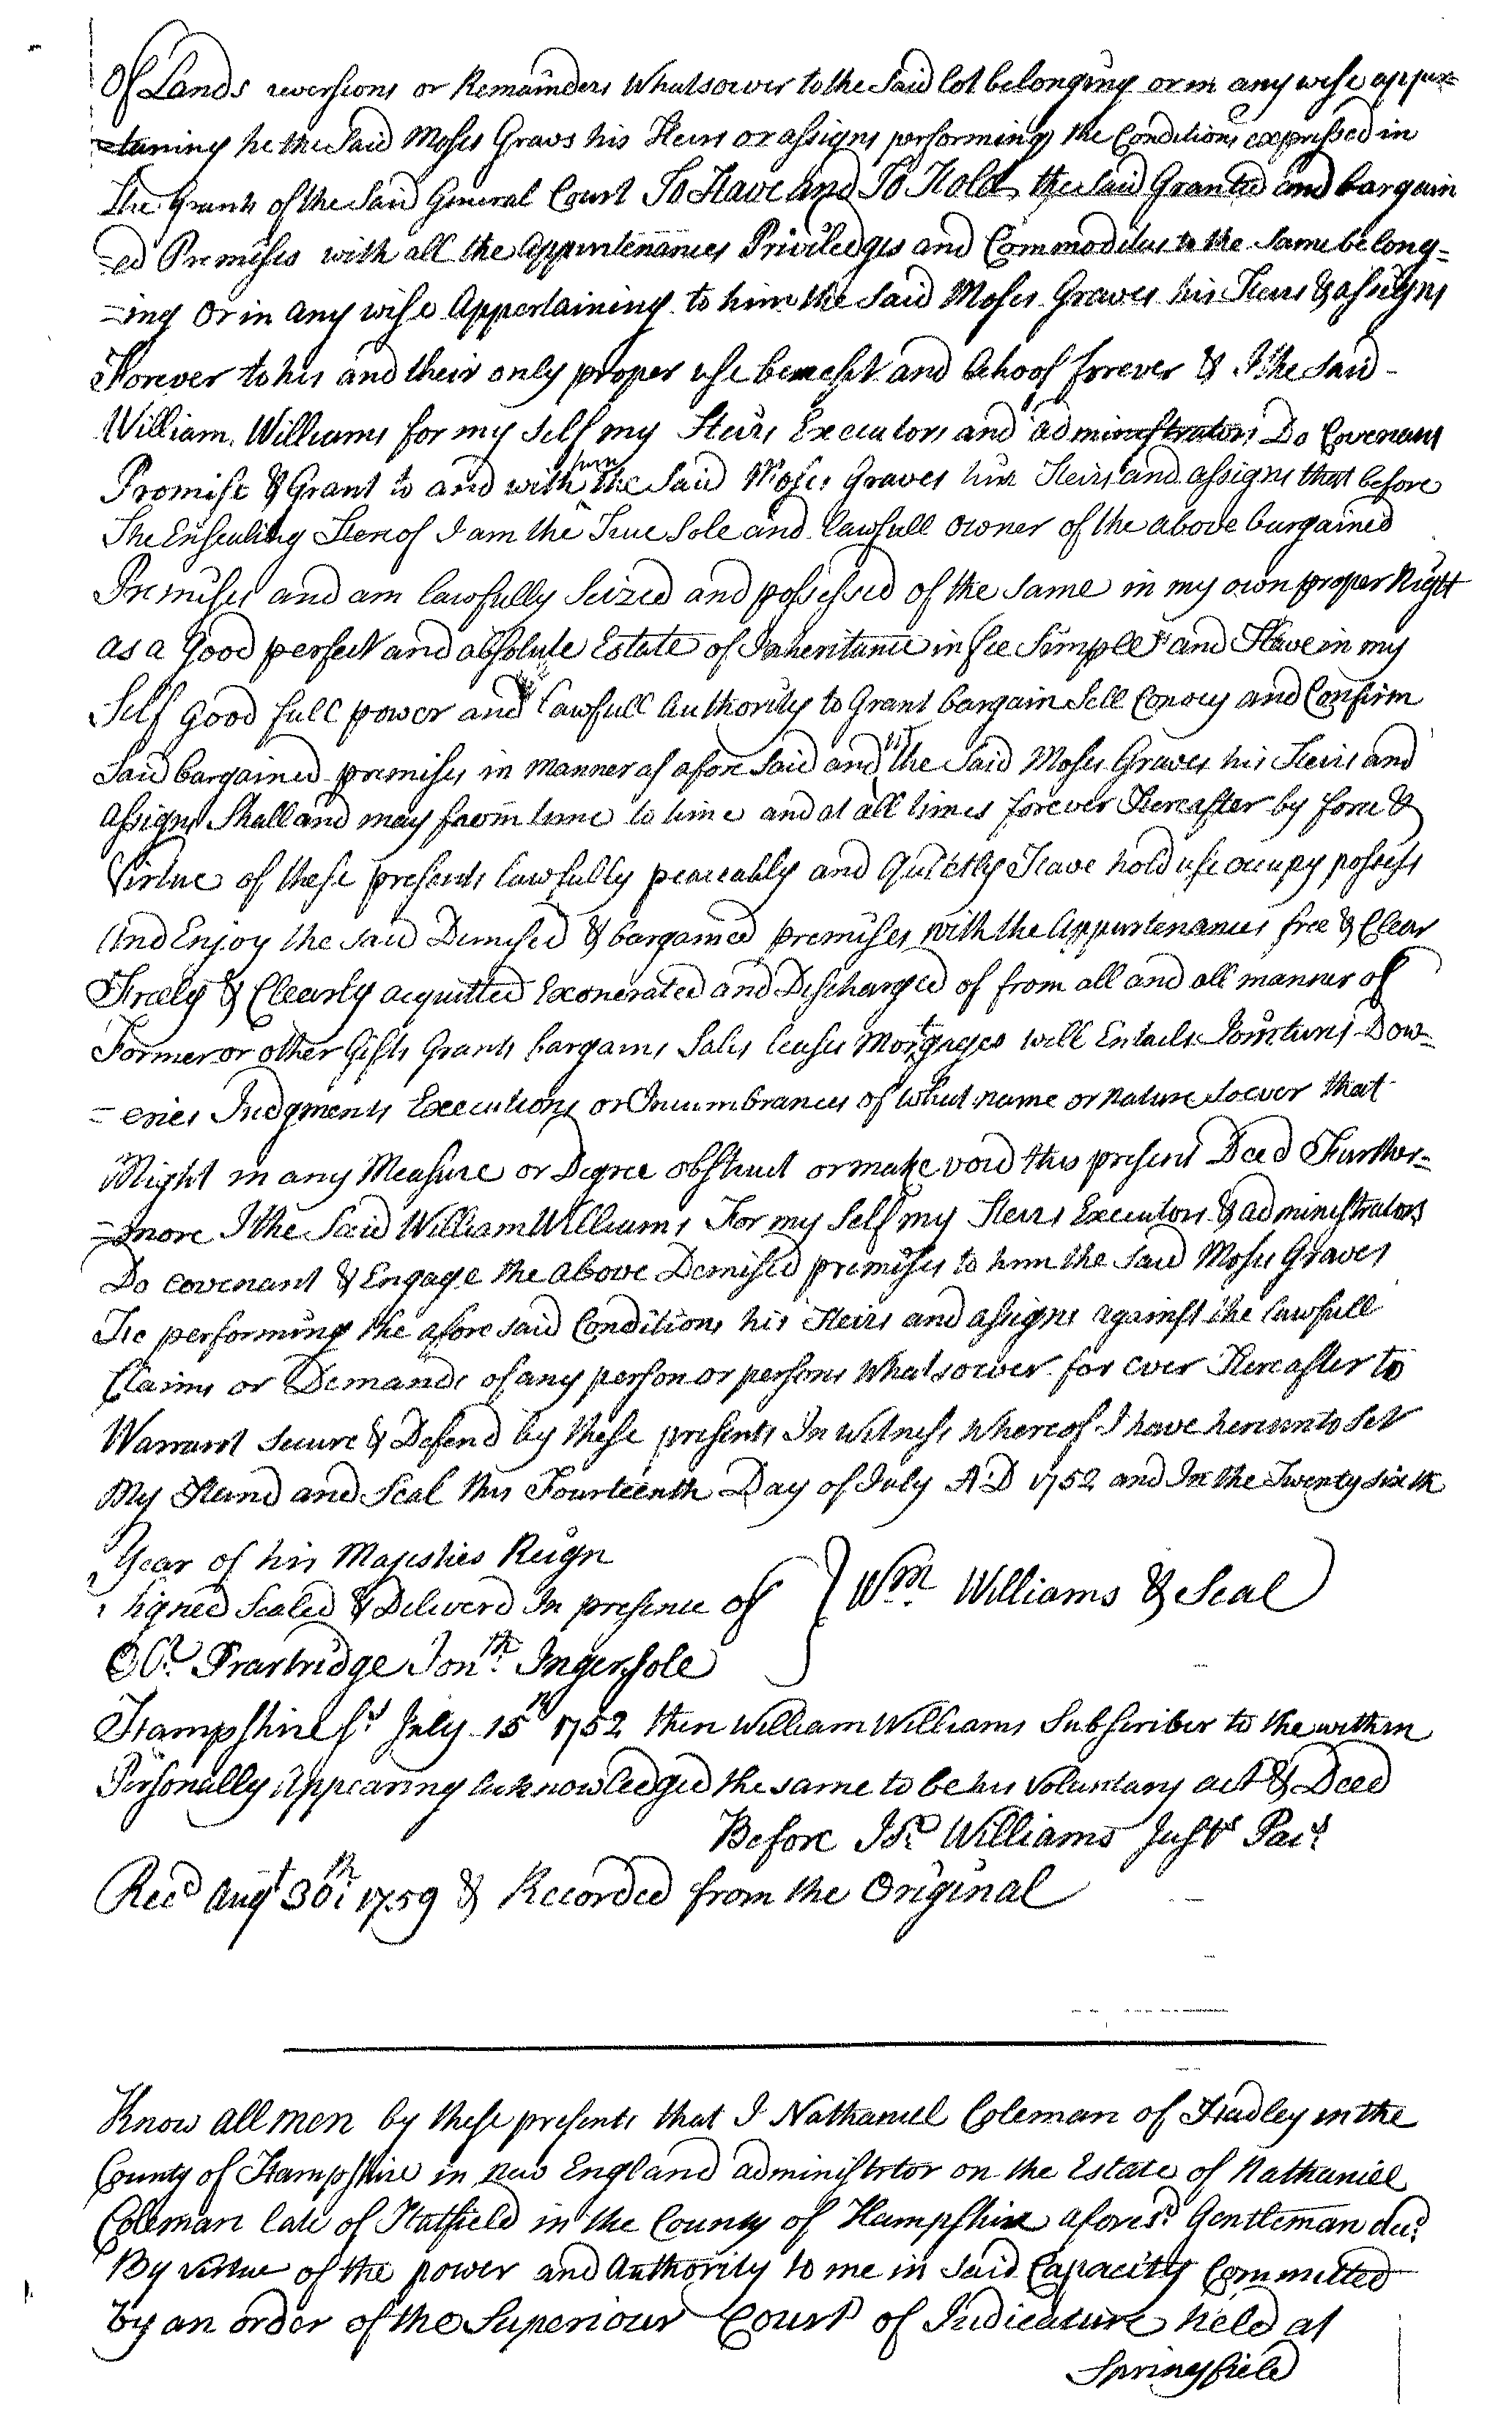 Of Lands reversions or Remainders Whatsoever to the Said lot belonging or in any wise apper=
=taining he the Said Moses Gravs his Heirs or assigns performing the Conditions expressed in
The Grants of the Said General Court To Have and To Hold the Said Granted and bargain
=ed Premises with all the Appurtenances Priviledges and Commodities to the Same belong=
=ing Or in any wise Appertaining to him the Said Moses Graves his Heirs & assigns
Forever to his and their only proper use benefit and behoof forever & I the Said -
William Williams for my Self my Heirs Executors and administrators Do Covenant
Promise & Grant to and with the Said Moses Graves his Heirs and assigns that before
The Ensealing Hereof I am the True Sole and lawfull owner of the above bargained
Premises and am lawfully Seized and possessed of the Same in my own proper Right
as a Good perfect and absolute Estate of Inheritance in fee Simple and Have in my
Self Good full power and lawfull Authority to Grant bargain Sell Convey and Confirm
Said bargained premises in manner as afore Said and yt the Said Moses Graves his Heirs and
Assigns Shall and may from time to time and at all times forever Hereafter by force &
Virtue of these presents lawfully peaceably and Quickly Have hold use occupy possess
And Enjoy the said Demised & bargained premises with the Appurtenances free & Clear
Freely & Clearly acquitted Exonerated and Discharged of from all and all manner of
Former or other Gifts Grants bargains Sales leases Mortgages Will Entails Jointures Dow=
=eries Judgments Executions or Incumbrances of what name or nature Soever that
Might in any Measure or Degree obstruct or make void this present Deed Further=
=more I the Said William Williams For my Self my Heirs Executors & administrators
Do covenant & Engage the above Demised premises to him the Said Moses Graves
He performing the afore said Conditions his Heirs and assigns against the lawfull
Claims or Demands of any person or persons Whatsoever for ever Hereafter to
Warrant Secure & Defend by these presents In Witness Whereof I have hereunto Set
My Hand and Seal this Fourteenth Day of July A:D 1752 and In the Twenty sixth
Year of his Majesties Reign
Signed Sealed & Deliverd In presence of } Wm. Williams & Seal
Ol.r Prartridge Jonth. Ingersole
Hampshire Ss July 15th 1752 then William Williams Subscriber to the within
Personally Appearing Acknowledged the same to be his voluntary act & Deed
Before Isr. Williams Justs Pacs
Recd Augt 30th: 1759 & Recorded from the Original
Know all men by these presents that I Nathaniel Coleman of Hadley in the
County of Hampshire in new England administrtor on the Estate of Nathaniell
Coleman late of Hatfield in the County of Hampshire aforesd. Gentleman decd.
By virtue of the power and Authority to me in Said Capacity Committed
by an order of the Superiour Court of Judicature held at
Springfield